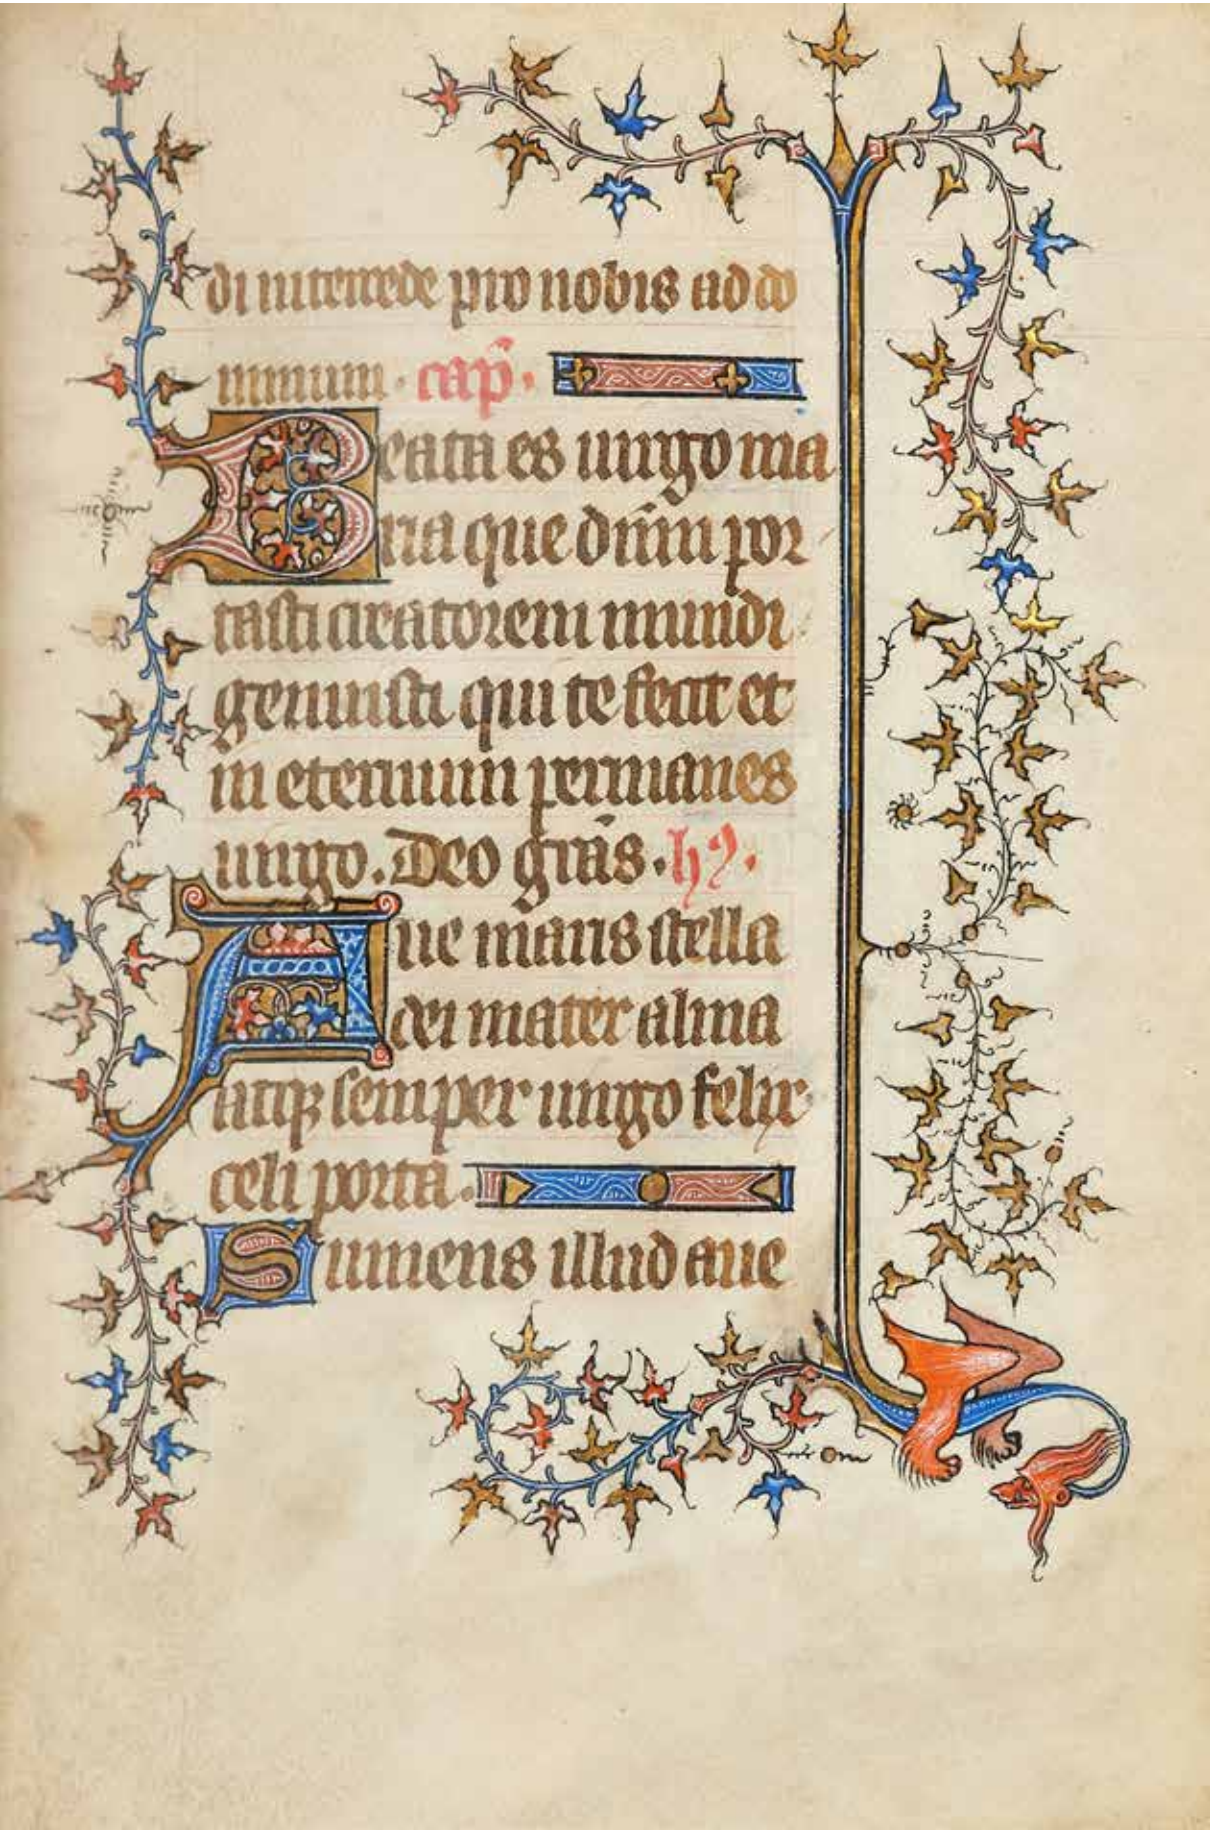 di intercede pro nobis ad do
minum. cap̃.
Beata es uirgo ma
ria que dñm por
tasti creatorem mundi
genuisti qui te fecit et
in eternum permanes
uirgo. Deo grãs. hỹ.
Aue maris stella
dei mater alma
atqꝫ semper uirgo felix
celi porta.
Sumens illud aue